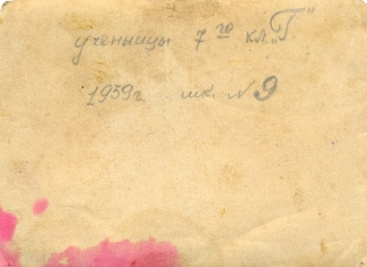 ученицы 7го кл. „Г"
1959г. шк. N 9